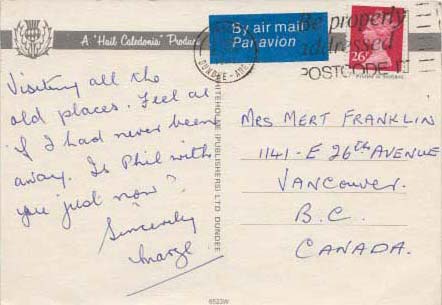 A "Hail Caledonia" Produc
By air mail
Par avion
DUNDEE-ANG
Be properly
addressed
POSTCODE IT
26
Printed in Scotland
Visiting all the
old places. Feel as
if I had never been
away. Is Phil with
you just now?
Sincerely
Marge.
WHITEHOLME (PUBLISHERS) LTD DUNDEE
Mrs MERT FRANKLIN
1141-E 26TH AVENUE
VANCOUVER.
B.C.
CANADA.
6523W